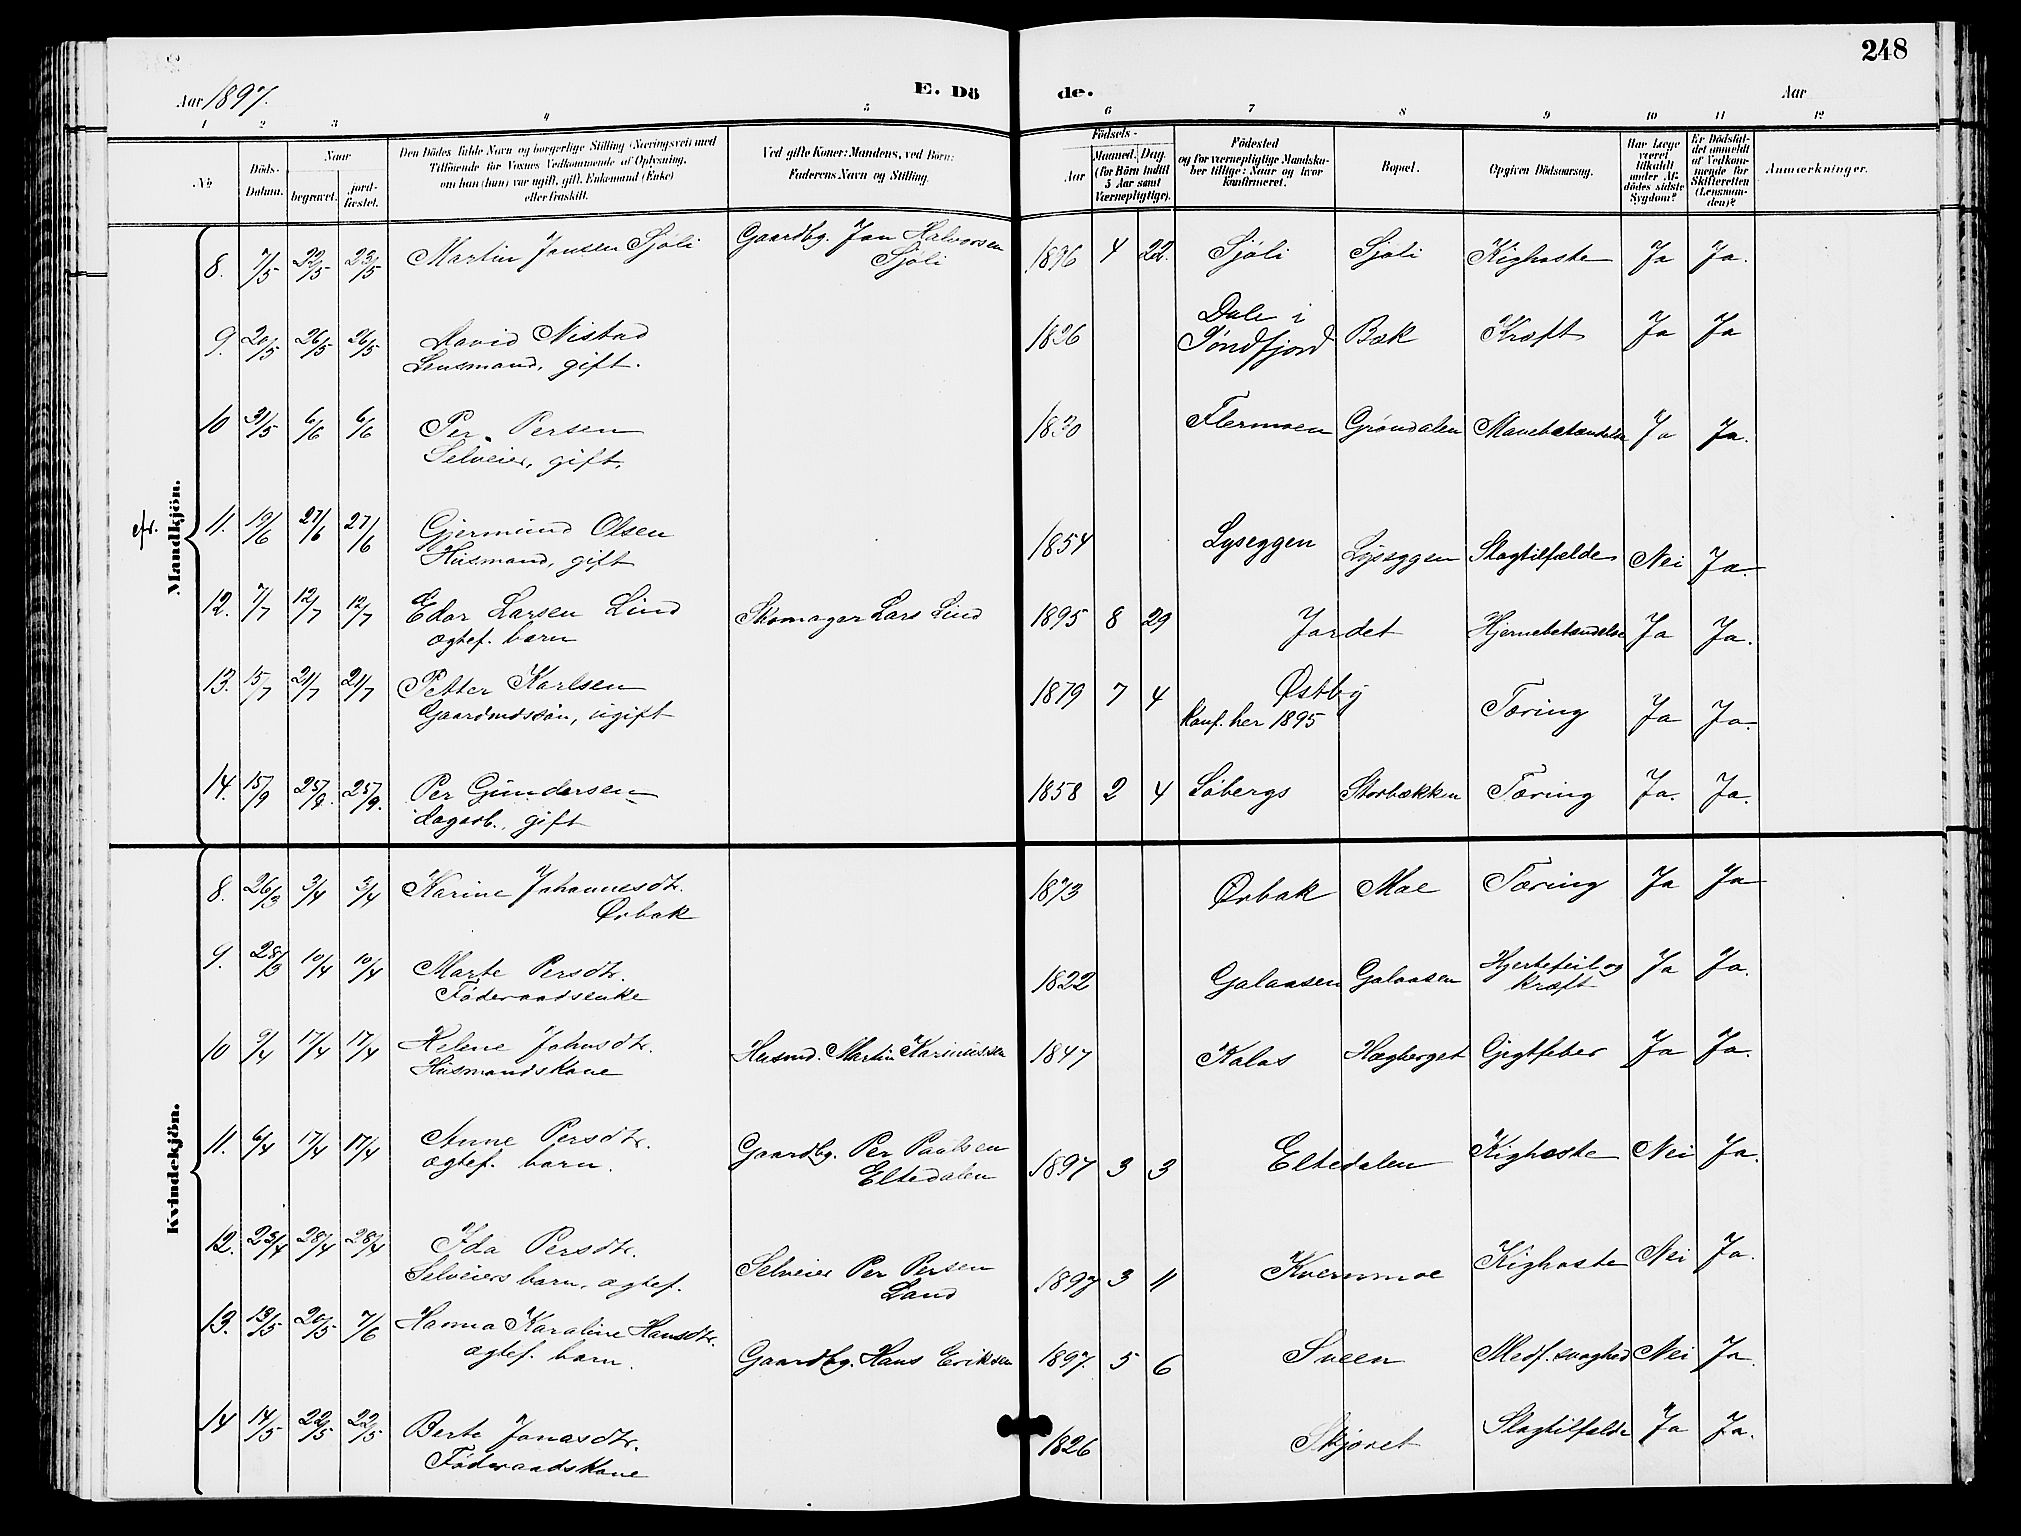 248
Aar 1897.
E. Dö
de.
Aar
1 2 3 4 5 6 7 8 9 10 11 12
No
Döds-Datum.
Naar
begravet.
jord-fæstet.
Den Dödes fulde Navn og borgerlige Stilling (Næringsvei) med
Tilföiende for Voxnes Vedkommende af Oplysning,
om han (hun) var ugift, gift, Enkemand (Enke)
eller fraskilt.
Ved gifte Koner: Mandens, ved Börn:
Faderens Navn og Stilling.
Födsels-
Aar
Maaned. Dag.
(for Börn indtil
5 Aar samt
Værnepligtige).
Födested
og for værnepligtige Mandska-
ber tillige: Naar og hvor
konfirmeret.
Bopæl.
Opgiven Dödsaarsag.
Har Læge
været
tilkaldt
under Af-
dödes sidste
Sygdom?
Er Dödsfal-
det anmeldt
af Vedkom-
mende for
Skifteretten
(Lensman-
den)?
Anmærkninger.
Mandkjön.
8. 7/5 22/5 23/5 Martin Jonsen Sjøli Gaardbg. Jon Halvorsen Sjøli 1896 4 22. Sjøli Sjøli Kighoste Ja Ja.
9. 20/5 26/5 26/5 David Nistad 1826 Dale i Søndfjord Bæk Kræft Ja Ja
Lensmand, gift.
10 31/5 6/6 6/6 Per Persen 1830 Flermoen Grøndalen Mavebetændelse Ja Ja.
Selveier, gift.
11. 19/6 27/6 27/6 Gjermund Olsen 1854 Lyseggen Lyseggen Slagtilfælde Nei Ja.
Husmand, gift
12. 7/7 12/7 12/7 Edor Larsen Lind Skomager Lars Lind 1895 8 29 Jordet Hjernebetændelse Ja Ja.
ægtef. barn
13. 15/7 21/7 21/7 Petter Karlsen 1879 7 4 Østby Tæring Ja Ja.
Gaardmdssøn, ugift konf. her 1895
14. 15/9 25/9. 25/9. Per Gundersen 1858 2 4 Søbergs Storbækken Tæring Ja. Ja.
dagarb., gift
Kvindekjön.
8. 26/3 3/4 3/4 Karine Johannesdtr. Ørbak 1873 Ørbak Moe Tæring Ja Ja
9. 28/3 10/4 10/4 Marte Persdtr. 1822 Galaasen Galaasen Hjertefeil og kræft Ja Ja.
Føderaadsenke
10 9/4 17/4 17/4 Helene Johnsdtr. Husmd. Martin Karinussen 1847 Kolos Hægberget Gigtfeber Ja Ja.
Husmandskone
11. 6/4 17/4 17/4 Anne Persdtr. Gaardbg. Per Paalsen Eltedalen 1897 3 3 Eltedalen Kighoste Nei Ja.
ægtef. barn.
12. 23/4 28/4 28/4 Ida Persdtr. Selveier Per Persen Land 1897 3 11 Kvernmoe Kighoste Nei Ja.
Selveiers barn, ægtef.
13. 13/5 20/5 7/6 Hanna Karoline Hansdtr. Gaardbg. Hans Eriksen 1897. 5 6 Sveen Medf. svaghed Nei Ja.
ægtef. barn.
14 14/5 22/5 22/5 Berte Jonasdtr. 1826 Skjæret Slagtilfælde Ja Ja.
Føderaadskone